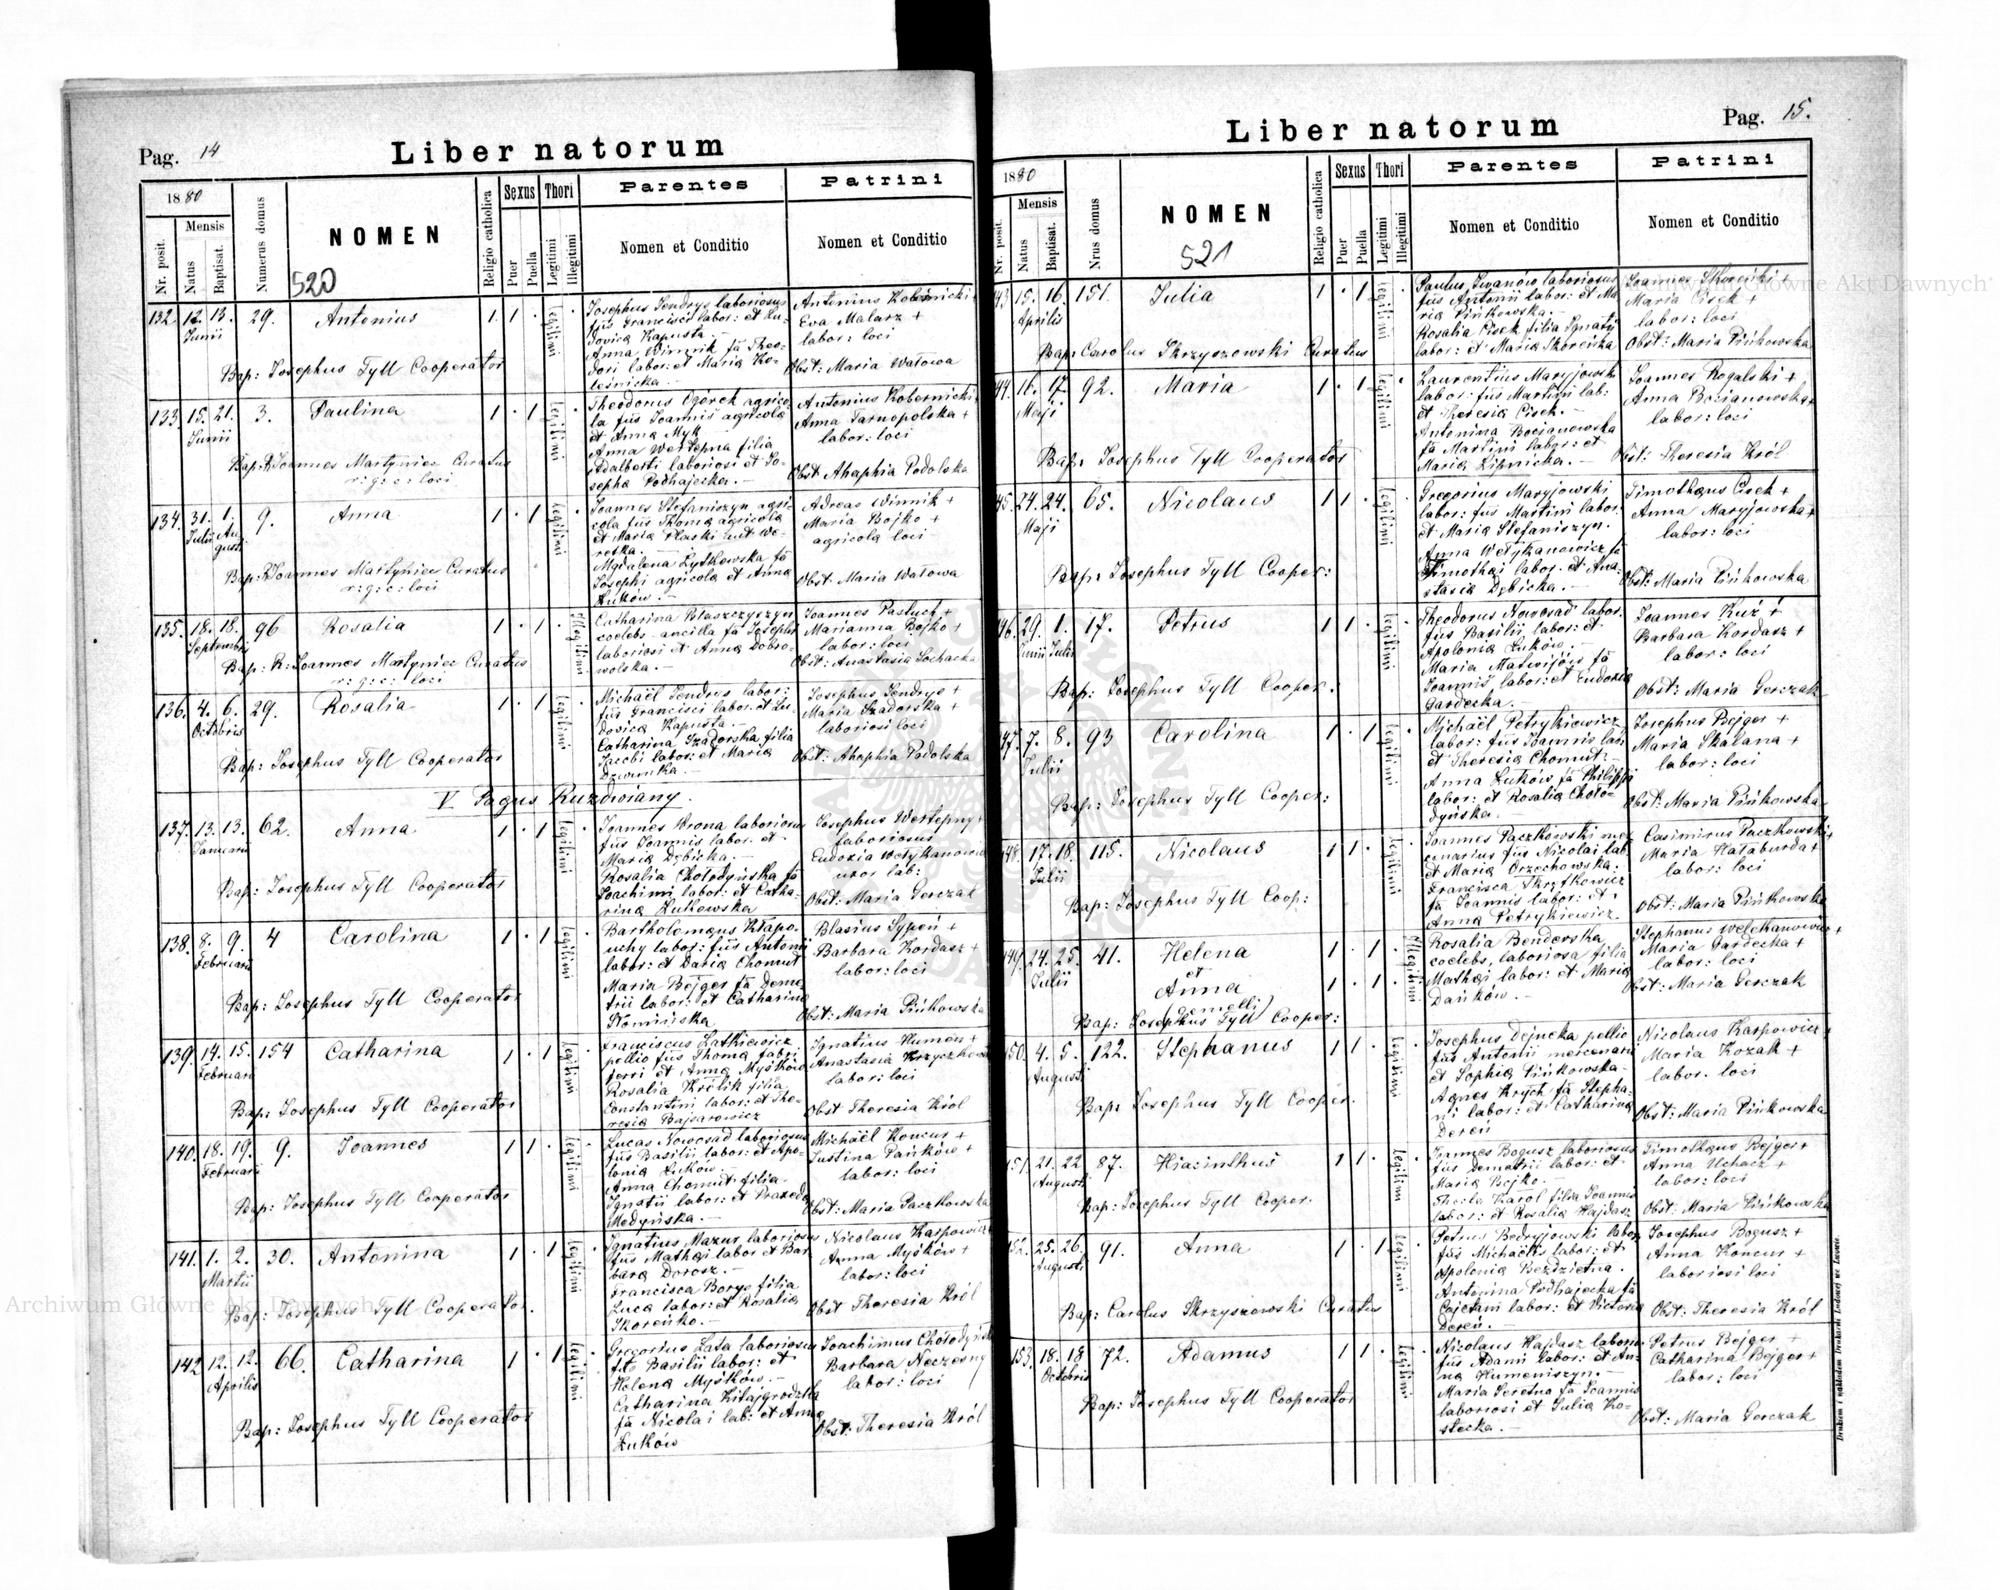 Pag. 14
Liber natorum
1880
Nr. posit.
Mensis
Natus
Baptisat.
Numerus domus
NOMEN
520
Religio catholica
Sexus
Puer
Puella
Thori
Legitimi
Illegitimi
Parentes
Nomen et Conditio
Patrini
Nomen et Conditio
132. 12. 13. Junii 29. Antonius 1. 1 . legitimi
Josephus Sendrys laboriosus
fus Francisci labor: et Lu-
dovica Kapusta. —
Anna Winnik fa Theo-
dori labor: et Maria Ko-
leśnicka. —
Antonius Kobernicki +
Eva Malarz +
labor: loci
Obst: Maria Watowa
Bap: Josephus Tyll Cooperator
133. 15. 21. Junii 3. Paulina 1 . 1 legitimi
Theodorus Ogórek agrico-
la fus Joannis agricola
et Anna Myk
Anna Wertepna filia
Adalberti laboriosi et Jo-
sepha Podhajecka. —
Antonius Kobernicki
Anna Tarnopolska +
labor: loci
Obst Ahaphia Podolska
Bap: R. Joannes Martyniec Curatus
r: g: c: loci
134. 31. Julii 1. Augusti 9. Anna 1 . 1 legitimi
Joannes Stefaniszyn agri-
cola fus Thoma agricola
et Maria Plaski aut We-
retka. —
Mgdalena Lytkowska fa
Josephi agricola et Anna
Łuków. —
Adreas Winnik +
Maria Bojko +
agricola loci
Obst. Maria Watowa
Bap: R. Joannes Martyniec Curatus
r: g: c: loci
135. 18. 18. Septembris 96 Rosalia 1 . 1 Illegitimi
Catharina Błaszczyszyn
coelebs - ancilla fa Josephi
laboriosi et Anna Dobro-
wolska. —
Joannes Pastuch +
Marianna Bojko +
labor: loci
Obst: Anastasia Sochacka
Bap: R: Joannes Martyniec Curatus
r: g: c: loci
136. 4. 6. Octobris 29. Rosalia 1 . 1 legitimi
Michaël Sendrys labor:
fus Francisci labor. et Lu-
dovica Kapusta. —
Catharina Szadorska filia
Jacobi labor: et Maria
Josephus Sendrys +
Maria Szadorska +
laboriosi loci
Obst: Ahophia Podolska
Bap: Josephus Tyll Cooperator
V Pagus Ruzdwiany.
137. 13. 13. Januarii 62. Anna 1 . 1 legitimi
Joannes Wrona laboriosus
fus Joannis labor. et
Maria Dębicka. —
Rosalia Chołodyńska fa
Joachimi labor: et Catha-
rina Łukowska
Josephus Wertepny +
laboriosus
Eudoxia Wełykanowicz
uxor lab:
Obst: Maria Gerczak
Bap: Josephus Tyll Cooperator
138. 8. 9. Februarii 4 Carolina 1 . 1 legitimi
Bartholomæus Kłapo-
uchy labor: fus Antonii
labor: et Daria Chomut
Maria Bejger fa Deme
trii labor: et Catharina
Słomińska
Blasius Sypeń +
Barbara Kordasz +
labor: loci
Obst: Maria Pińkowska
Bap: Josephus Tyll Cooperator
139. 14. 15. Februarii 154 Catharina 1 . 1 legitimi
Franciscus Latkiewicz
pellio fus Thoma fabri
ferri et Anna Myśków
Rosalia Królik filia
Constantini labor: et The-
resia Bajsarowicz
Ignatius Humen +
Anastasia Krzyczkowska
labor: loci
Obst Theresia Król
Bap: Josephus Tyll Cooperator
140. 18. 19. Februarii 9. Joannes 1 1 . legitimi
Lucas Nowosad laboriosus
fus Basilii labor: et Apo-
lonia Łuków. —
Anna Chomut filia
Ignatii labor: et Praxeda
Medyńska. —
Michaël Koncur +
Justina Pańków +
labor: loci
Obst: Maria Paczkowska
Bap: Josephus Tyll Cooperator
141. 1. 2. Martii 30. Antonina 1 . 1 legitimi
Ignatius Mazur laboriosus
fus Mathæi labor et Bar
bara Dorosz. —
Francisca Borys filia
Luca labor: et Rosalia
Skoreńko. —
Nicolaus Karpowicz
Anna Myśków +
labor: loci
Obst Theresia Król
Bap: Josephus Tyll Cooperator.
142 12. 12. Aprilis 66. Catharina 1 . 1 legitimi
Gregorius Lata laboriosus
fus Basilii labor: et
Helena Myśków. —
Catharina Kitajgrodzka
fa Nicolai lab: et Anna
Łuków
Joachimus Chołodyński
Barbara Neczesny
labor: loci
Obst: Theresia Król
Bap: Josephus Tyll Cooperator
Liber natorum
Pag. 15.
1880
Nr. posit.
Mensis
Natus
Baptisat.
Nrus domus
NOMEN
521
Religio catholica
Sexus
Puer
Puella
Thori
Legitimi
Illegitimi
Parentes
Nomen et Conditio
Patrini
Nomen et Conditio
43 15. 16. Aprilis 151. Julia 1 . 1 legitimi
Paulus Iwanów laboriosus
fus Antonii labor: et Ma
ria Pińkowska. —
Rosalia Cisek filia Ignatii
labor: et Maria Skoreńska
Joannes Skoreński +
Maria Cisek +
labor: loci
Obst: Maria Pińkowska
Bap: Carolus Skrzyszowski Curatus
44. 16. 17. Maji 92. Maria 1 . 1 legitimi
Laurentius Maryjowski
labor: fus Martini lab:
et Theresia Cisek. —
Antonina Bocianowska
fa Martini labor: et
Maria Lipnicka. —
Joannes Rogalski +
Anna Bocianowska +
labor: loci
Obst: Theresia Król
Bap: Josephus Tyll Cooperator
45. 24. 24. Maji 65. Nicolaus 1 1 . legitimi
Gregorius Maryjowski
labor: fus Martini labor.
et Maria Stefaniszyn.
Anna Wełykanowicz fa
Timothæi labor. et Ana
stasia Dębicka. —
Timothæus Cisek +
Anna Maryjowska +
labor: loci
Obst: Maria Pińkowska
Bap: Josephus Tyll Cooper:
46. 29. Junii 1. Julii 17. Petrus 1 1 . legitimi
Theodorus Nowosad labor.
fus Basilii labor: et
Apolonia Łuków.
Maria Matwijów fa
Joannis labor: et Eudoxia
Gardecka. —
Joannes Kuź +
Barbara Kordasz +
labor: loci
Obst: Maria Gerczak
Bap: Josephus Tyll Cooper.:
47. 7. 8. Julii 93 Carolina 1 . 1 legitimi
Michaël Petrykiewicz
labor: fus Joannis lab
et Theresia Chomut. —
Anna Łuków fa Philippi
labor: et Rosalia Choło-
dyńska. —
Josephus Bejger +
Maria Skalana +
labor: loci
Obst: Maria Pińkowska
Bap: Josephus Tyll Cooper:
48. 17. 18. Julii 115. Nicolaus 1 1 . legitimi
Joannes Paczkowski mer
cenarius fus Nicolai lab
et Maria Orzechowska.
Francisca Skrzytkowicz
fa Joannis labor: et
Anna Petrykiewicz.
Casimirus Paczkowski +
Maria Hałaburda +
labor: loci
Obst: Maria Pińkowska
Bap: Josephus Tyll Coop:
149. 24. 25. Julii 41. Helena 1 . 1 Illegitimi
et
Anna 1 . 1
(gemelli)
Rosalia Benderska
coelebs, laboriosa filia
Mathæi labor: et Maria
Dańków. —
Stephanus Welekanowicz +
Maria Gardecka +
labor: loci
Obst: Maria Gerczak
Bap: Josephus Tyll Cooper:
150. 4. 5. Augusti 122. Stephanus 1 1 . legitimi
Josephus Dejneka pellio
fus Antonii mercenarii
et Sophia Pińkowska —
Agnes Krych fa Stepha-
ni labor: et Catharina
Dereń
Nicolaus Karpowicz
Maria Kozak +
labor. loci
Obst: Maria Pińkowska
Bap: Josephus Tyll Cooper.
151. 21. 22 Augusti 87. Hiacinthus 1 1 . legitimi
Joannes Bogusz laboriosus
fus Demetrii labor: et
Maria Bojko. —
Thecla Karol filia Joannis
labor: et Rosalia Hajdasz
Timothæus Bejger +
Anna Uchacz +
labor: loci
Obst: Maria Pińkowska
Bap: Josephus Tyll Cooper.
152. 25. 26. Augusti 91. Anna 1 . 1 legitimi
Petrus Bedryjowski labor
fus Michaëlis labor: et
Apolonia Bezdzietna.
Antonina Podhajecka fa
Cajetani labor: et Victoria
Dereń. —
Josephus Bogusz +
Anna Koncur +
laboriosi loci
Obst: Theresia Król
Bap: Carolus Skrzyszowski Curatus
153. 18. 18 Octobris 72. Adamus 1 1 . legitimi
Nicolaus Hajdasz laborio.
fus Adami labor: et An-
na Humeniszyn. —
Maria Seretna fa Joannis
laboriosi et Julia Ko-
stecka. —
Petrus Bejger +
Catharina Bejger +
labor: loci
Obst: Maria Gerczak
Bap: Josephus Tyll Cooperator
Drukiem i nakładem Drukarni Ludowej we Lwowie.
Archiwum Główne Akt Dawnych
Archiwum Główne Akt Dawnych